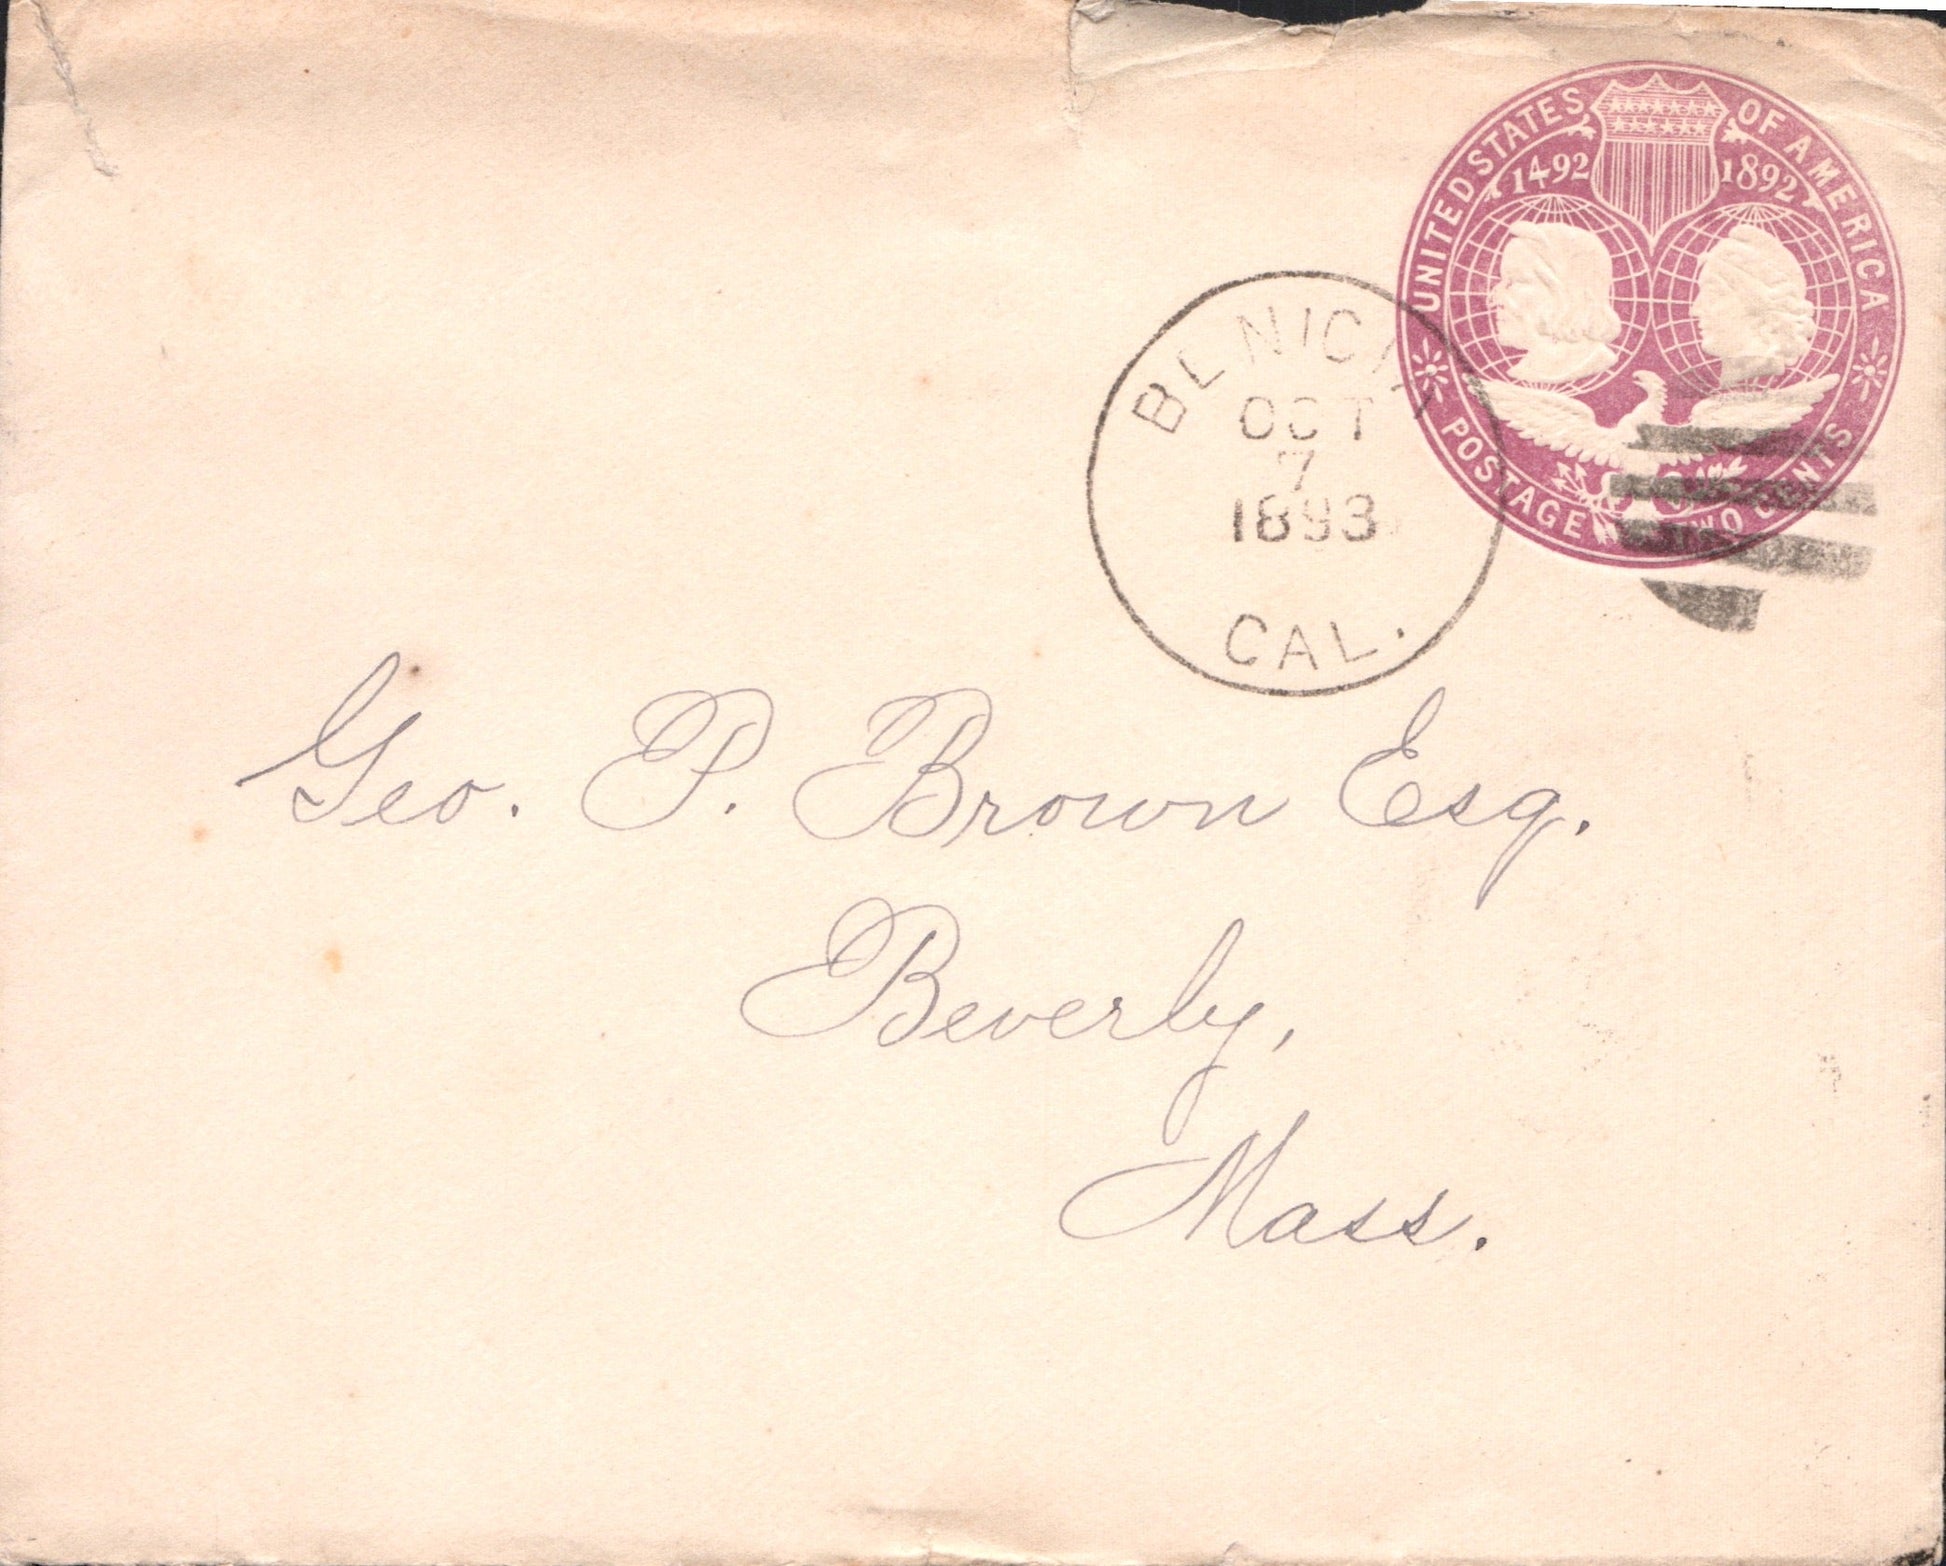 UNITED STATES OF AMERICA
1492 1892
POSTAGE TWO CENTS
BENICIA
OCT
7
1893
CAL.
Geo. P. Brown Esq.
Beverly,
Mass.